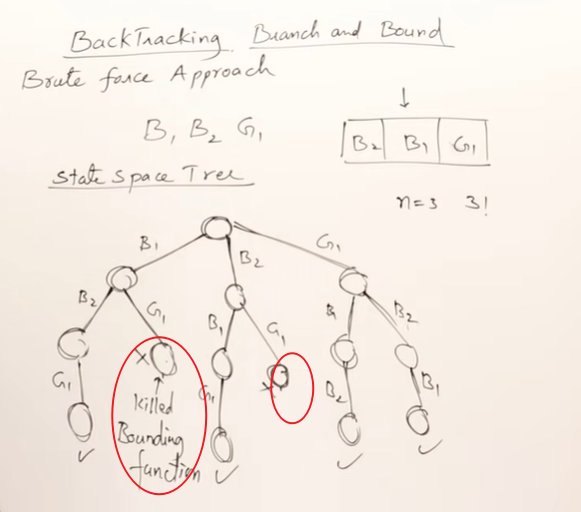 BackTracking Branch and Bound
Brute force Approach
↓
B₁ B₂ G₁
B₂ B₁ G₁
State Space Tree
n=3 3!
B₁ B₂ G₁
B₂ G₁ B₁ G₁ B₁ B₂
G₁ × G₁ × B₂ B₁
killed
Bounding
function
✓ ✓ ✓ ✓